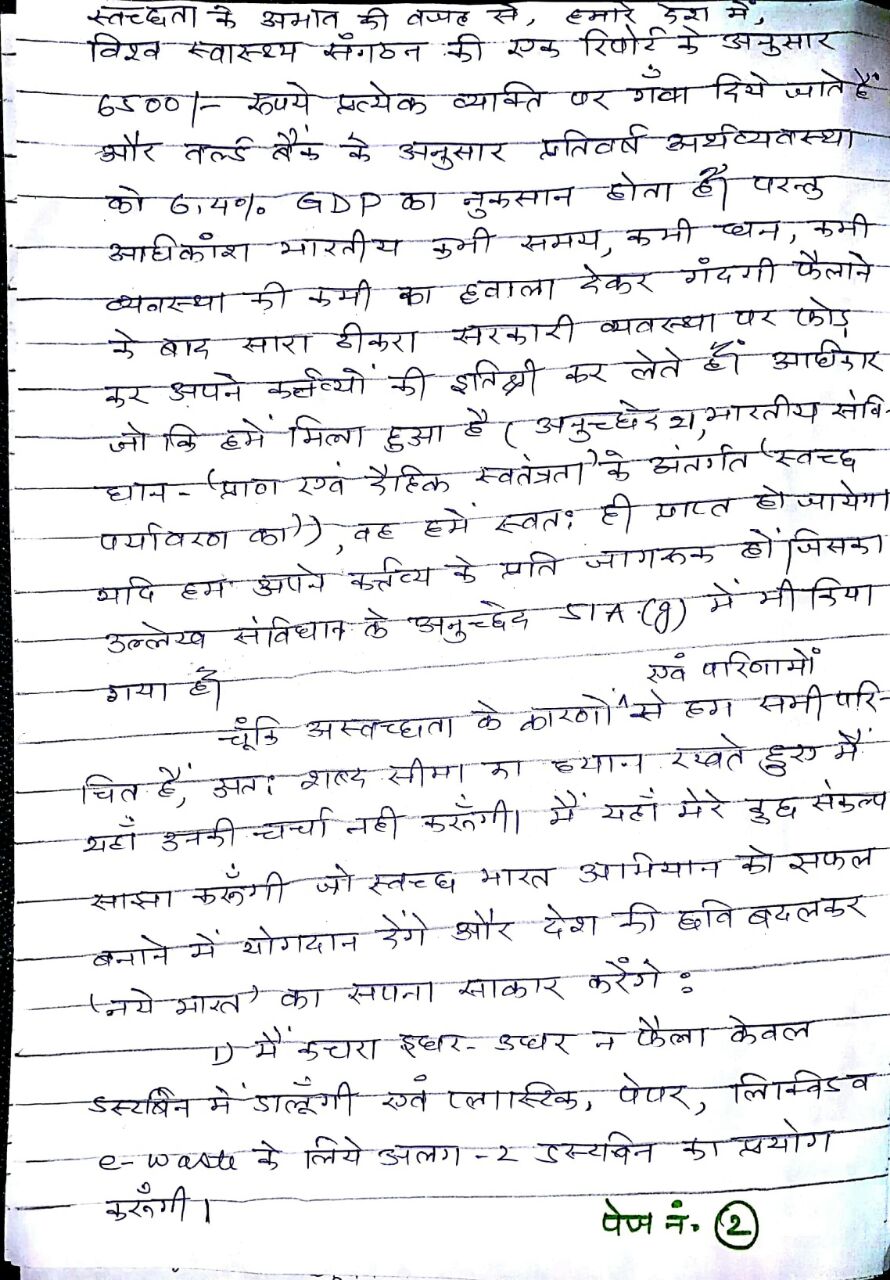 स्वच्छता के अभाव की वजह से, हमारे देश में,
विश्व स्वास्थ्य संगठन की एक रिपोर्ट के अनुसार
6500/- रूपये प्रत्येक व्यक्ति पर गँवा दिये जाते हैं
और वर्ल्ड बैंक के अनुसार प्रतिवर्ष अर्थव्यवस्था
को 6.4% GDP का नुकसान होता है। परन्तु
अधिकांश भारतीय कभी समय, कभी धन, कभी
व्यवस्था की कमी का हवाला देकर गंदगी फैलाने
के बाद सारा ठीकरा सरकारी व्यवस्था पर फोड़
कर अपने कर्त्तव्यों की इतिश्री कर लेते हैं। अधिकार
जो कि हमें मिला हुआ है (अनुच्छेद 21, भारतीय संवि-
धान - 'प्राण एवं दैहिक स्वतंत्रता' के अंतर्गत 'स्वच्छ
पर्यावरण का'), वह हमें स्वतः ही प्राप्त हो जायेगा
यदि हम अपने कर्त्तव्य के प्रति जागरूक हों जिसका
उल्लेख संविधान के अनुच्छेद 51A.(g) में भी किया
गया है।
चूँकि अस्वच्छता के कारणों एवं परिणामों से हम सभी परि-
चित हैं, अतः शब्द सीमा का ध्यान रखते हुए मैं
यहाँ उनकी चर्चा नही करूँगी। मैं यहाँ मेरे कुछ संकल्प
साझा करूँगी जो स्वच्छ भारत अभियान को सफल
बनाने में योगदान देंगे और देश की छवि बदलकर
'नये भारत' का सपना साकार करेंगे :
1) मैं कचरा इधर-उधर न फैला केवल
डस्टबिन में डालूँगी एवं प्लास्टिक, पेपर, लिक्विड व
e-waste के लिये अलग-2 डस्टबिन का प्रयोग
करूँगी।
पेज नं. 2